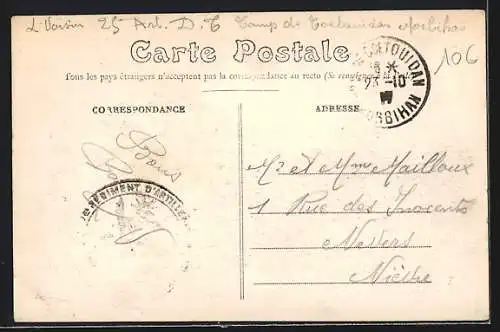 L. Voisin 25 Art. D. T Camp de Coëtquidan Morbihan
106
Carte Postale
Tous les pays étrangers n'acceptent pas la correspondance au recto (Se renseigner
COËTQUIDAN
23 -10
MORBIHAN
CORRESPONDANCE
ADRESSE
Bons
RÉGIMENT D'ARTILLERIE
Mr et Mme Mailloux
1 Rue des Inocents
Nevers
Nièvre